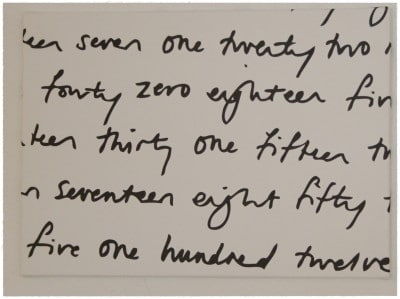 teen seven one twenty two
forty zero eighteen five
teen thirty one fifteen
seventeen eight fifty
five one hundred twelve